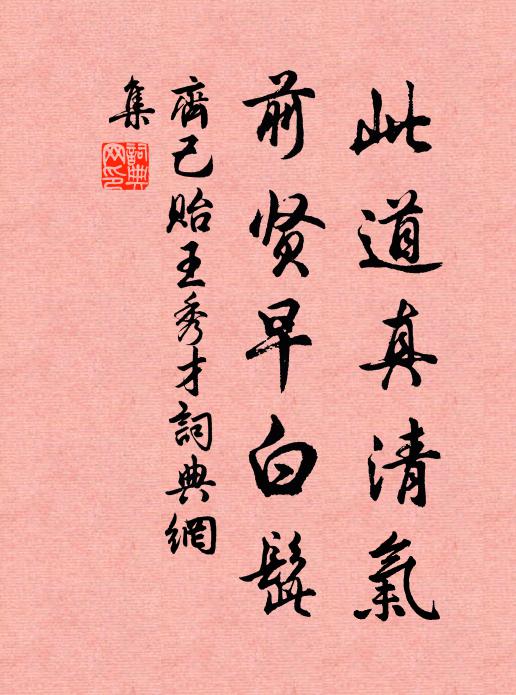 此道真清氣
前贤早白髭
齊己貽王秀才詞典網
集
詞典
网印